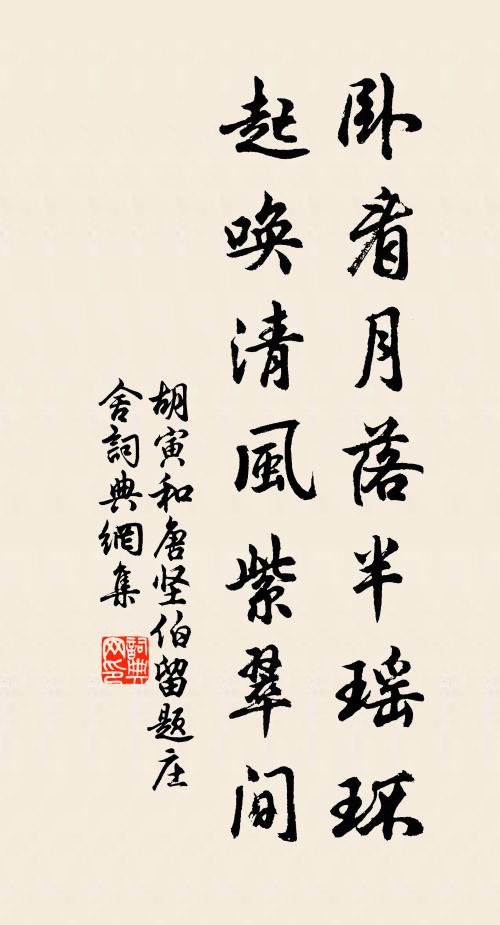 卧看月落半瑶环
起唤清風紫翠间
胡寅和唐坚伯留题庄
舍詞典網集
詞典网印